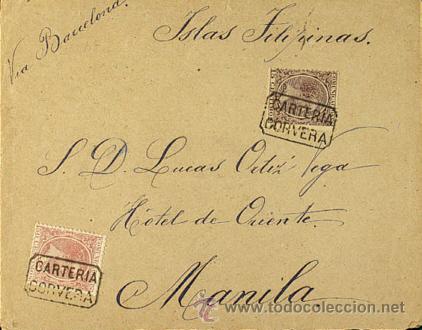 Via Barcelona.
Islas Filipinas.
CARTERIA
CORVERA
S. D. Lucas Ortiz Vega
Hotel de Oriente.
CARTERIA
CORVERA
Manila
todocoleccion.net